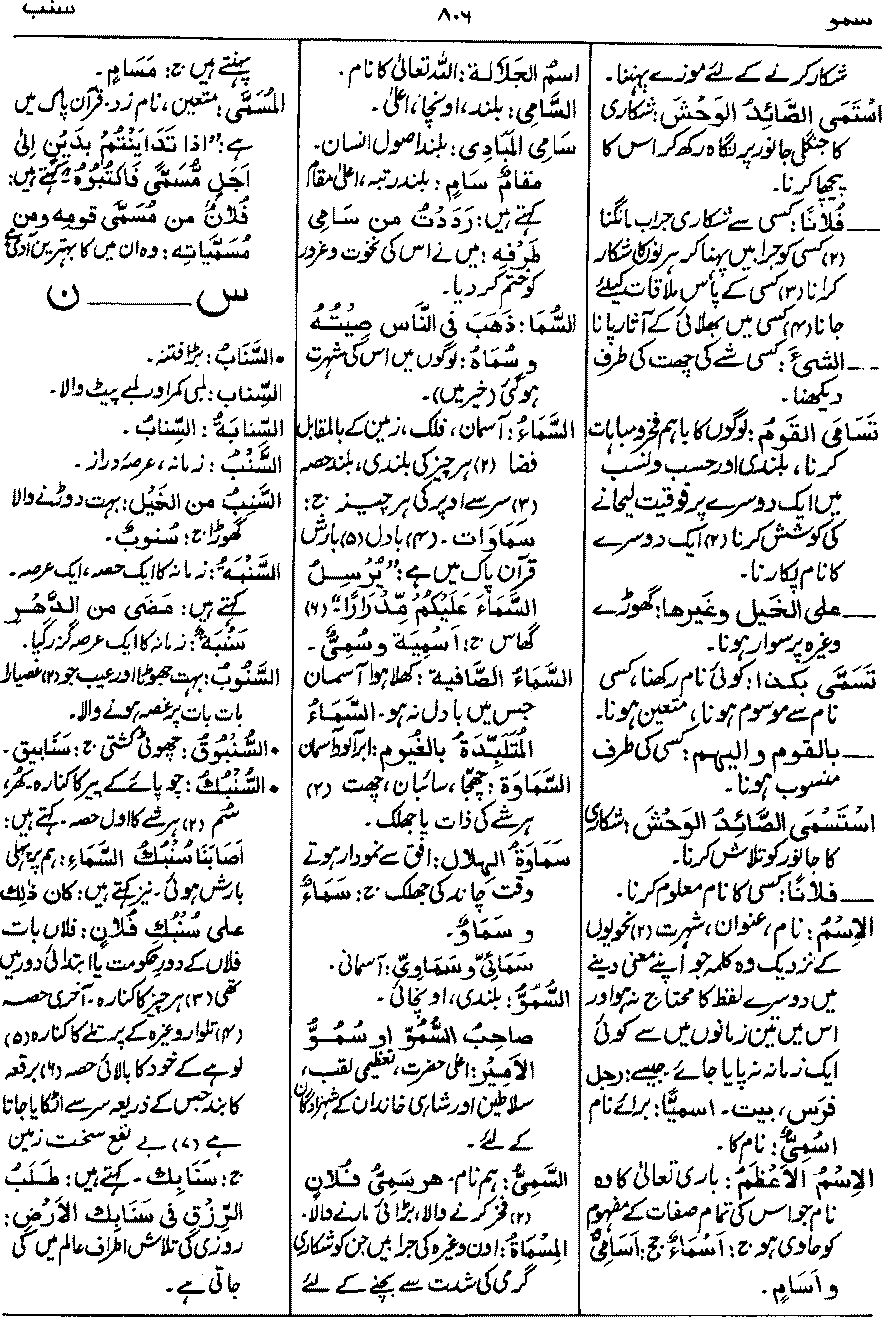 سمو
٨٠٦
سنب
شکار کرنے کے لئے موزے پہننا۔
اسْتَمَى الصَّائِدُ الوَحْشَ: شکاری
کا جنگلی جانور پر نگاہ رکھ کر اس کا
پیچھا کرنا۔
__ فُلَانًا: کسی سے شکاری جراب مانگنا
(۲) کسی کو جرابیں پہنا کر ہرنوں کا شکار
کرانا (۳) کسی کے پاس ملاقات کیلئے
جانا (۴) کسی میں بھلائی کے آثار پانا
__ الشيءَ: کسی شے کی چھت کی طرف
دیکھنا۔
تَسَامَى القَوْمُ: لوگوں کا باہم فخر و مباہات
کرنا، بلندی اور حسب و نسب
میں ایک دوسرے پر فوقیت لیجانے
کی کوشش کرنا (۲) ایک دوسرے
کا نام پکارنا۔
__ على الخَيل وغيرها: گھوڑے
وغیرہ پر سوار ہونا۔
تَسَمَّى بكذا: کوئی نام رکھنا، کسی
نام سے موسوم ہونا، متعین ہونا۔
__ بالقوم و إليهم: کسی کی طرف
منسوب ہونا۔
اسْتَسْمَى الصَّائِدُ الوَحْشَ: شکاری
کا جانور کو تلاش کرنا۔
__ فلانًا: کسی کا نام معلوم کرنا۔
الإِسْمُ: نام، عنوان، شہرت (۲) نحویوں
کے نزدیک وہ کلمہ جو اپنے معنی دینے
میں دوسرے لفظ کا محتاج نہ ہو اور
اس میں تین زمانوں میں سے کوئی
ایک زمانہ نہ پایا جائے۔ جیسے: رجل
فرَس، بیت۔ اسمیًّا: برائے نام
اسْمِيٌّ: نام کا۔
الاِسْمُ الاَعْظَمُ: باری تعالیٰ کا وہ
نام جو اس کی تمام صفات کے مفہوم
کو حاوی ہو ج: أَسْمَاءٌ جج: أَسَامِيُّ
و أَسَامٍ۔
اسمُ الجَلَالة: اللہ تعالیٰ کا نام۔
السَّامِي: بلند، اونچا، اعلیٰ۔
سَامِي المَبَادِي: بلند اصول انسان۔
مقامٌ سَامٍ: بلند رتبہ، اعلیٰ مقام
کہتے ہیں: رَدَدْتُ من سَامِي
طَرْفِهِ: میں نے اس کی نخوت و غرور
کو ختم کر دیا۔
السُّمَا: ذَهَبَ في النَّاس صِيْتُهُ
و سُمَاهُ: لوگوں میں اس کی شہرت
ہو گئی (خیر میں)۔
السَّمَاءُ: آسمان، فلک، زمین کے بالمقابل
فضا (۲) ہر چیز کی بلندی، بلند حصہ
(۳) سر سے اوپر کی ہر چیز ج:
سَمَاوَات۔ (۴) بادل (۵) بارش
قرآن پاک میں ہے: "يُرْسِلُ
السَّمَاءَ عَلَيْكُمْ مِّدْرَارًا" (۶)
گھاس ج: أَسْمِيَة و سُمِيٌّ۔
السَّمَاءُ الصَّافية: کھلا ہوا آسمان
جس میں بادل نہ ہو۔ السَّمَاءُ
المُتَلَبِّدَةُ بالغُيُوم: ابر آلود آسمان
السَّمَاوَة: چھجا، سائبان، چھت (۲)
ہر شے کی ذات یا جھلک۔
سَمَاوَةُ الهِلال: افق سے نمودار ہوتے
وقت چاند کی جھلک ج: سَمَاءٌ
و سَمَاوٌ۔
سَمَائِيّ و سَمَاوِيّ: آسمانی۔
السُّمُوّ: بلندی، اونچائی۔
صاحبُ السُّمُوّ او سُمُوُّ
الأَمِيْر: اعلی حضرت، تعظیمی لقب،
سلاطین اور شاہی خاندان کے شہزادگان
کے لئے۔
السَّمِيُّ: ہم نام۔ هو سَمِيُّ فُلَانٍ
(۲) فخر کرنے والا، بڑائی مارنے والا۔
المِسْمَاةُ: اون وغیرہ کی جرابیں جن کو شکاری
گرمی کی شدت سے بچنے کے لئے
پہنتے ہیں ج: مَسَامٍ۔
المُسَمَّى: متعین، نام زد۔ قرآن پاک میں
ہے: "اذا تَدَايَنْتُمْ بِدَيْنٍ إلىٰ
أَجَلٍ مُّسَمًّى فَاكْتُبُوهُ" کہتے ہیں:
فُلَانٌ من مُسَمَّى قومِه ومن
مُسَمَّياتِه: وہ ان میں کا بہترین آدمی ہے
س ______ ن
• السَّنَابُ: بڑا فتنہ۔
السِّناب: لمبی کمر اور لمبے پیٹ والا۔
السِّنابةُ: السِّنابُ۔
السَّنْبُ: زمانہ، عرصہ دراز۔
السَّنِبُ من الخَيْل: بہت دوڑنے والا
گھوڑا ج: سُنوبٌ۔
السَّنْبَةُ: زمانہ کا ایک حصہ، ایک عرصہ۔
کہتے ہیں: مَضَى من الدَّهْرِ
سَنْبَةٌ: زمانہ کا ایک عرصہ گزر گیا۔
السَّنُوبُ: بہت جھوٹا اور عیب جو (۲) غصیلا
بات بات پر غصہ ہونے والا۔
• السُّنْبُوقُ: چھوٹی کشتی ج: سَنَابِيق۔
• السُّنْبُكُ: چوپائے کے پیر کا کنارہ۔ کھر،
سُم (۲) ہر شے کا اول حصہ۔ کہتے ہیں:
أَصَابَنَا سُنْبُكُ السَّمَاء: ہم پر پہلی
بارش ہوئی۔ نیز کہتے ہیں: كان ذٰلك
على سُنْبُك فُلَانٍ: فلاں بات
فلاں کے دورِ حکومت یا ابتدائی دور میں
تھی (۳) ہر چیز کا کنارہ۔ آخری حصہ
(۴) تلوار وغیرہ کے پرتلے کا کنارہ (۵)
لوہے کے خود کا بالائی حصہ (۶) برقعہ
کا بند جس کے ذریعہ سر سے اٹکایا جاتا
ہے (۷) بے نفع سخت زمین
ج: سَنَابِك۔ کہتے ہیں: طَلَبُ
الرِّزْقِ في سَنَابِكِ الأَرْضِ:
روزی کی تلاش اطراف عالم میں کی
جاتی ہے۔